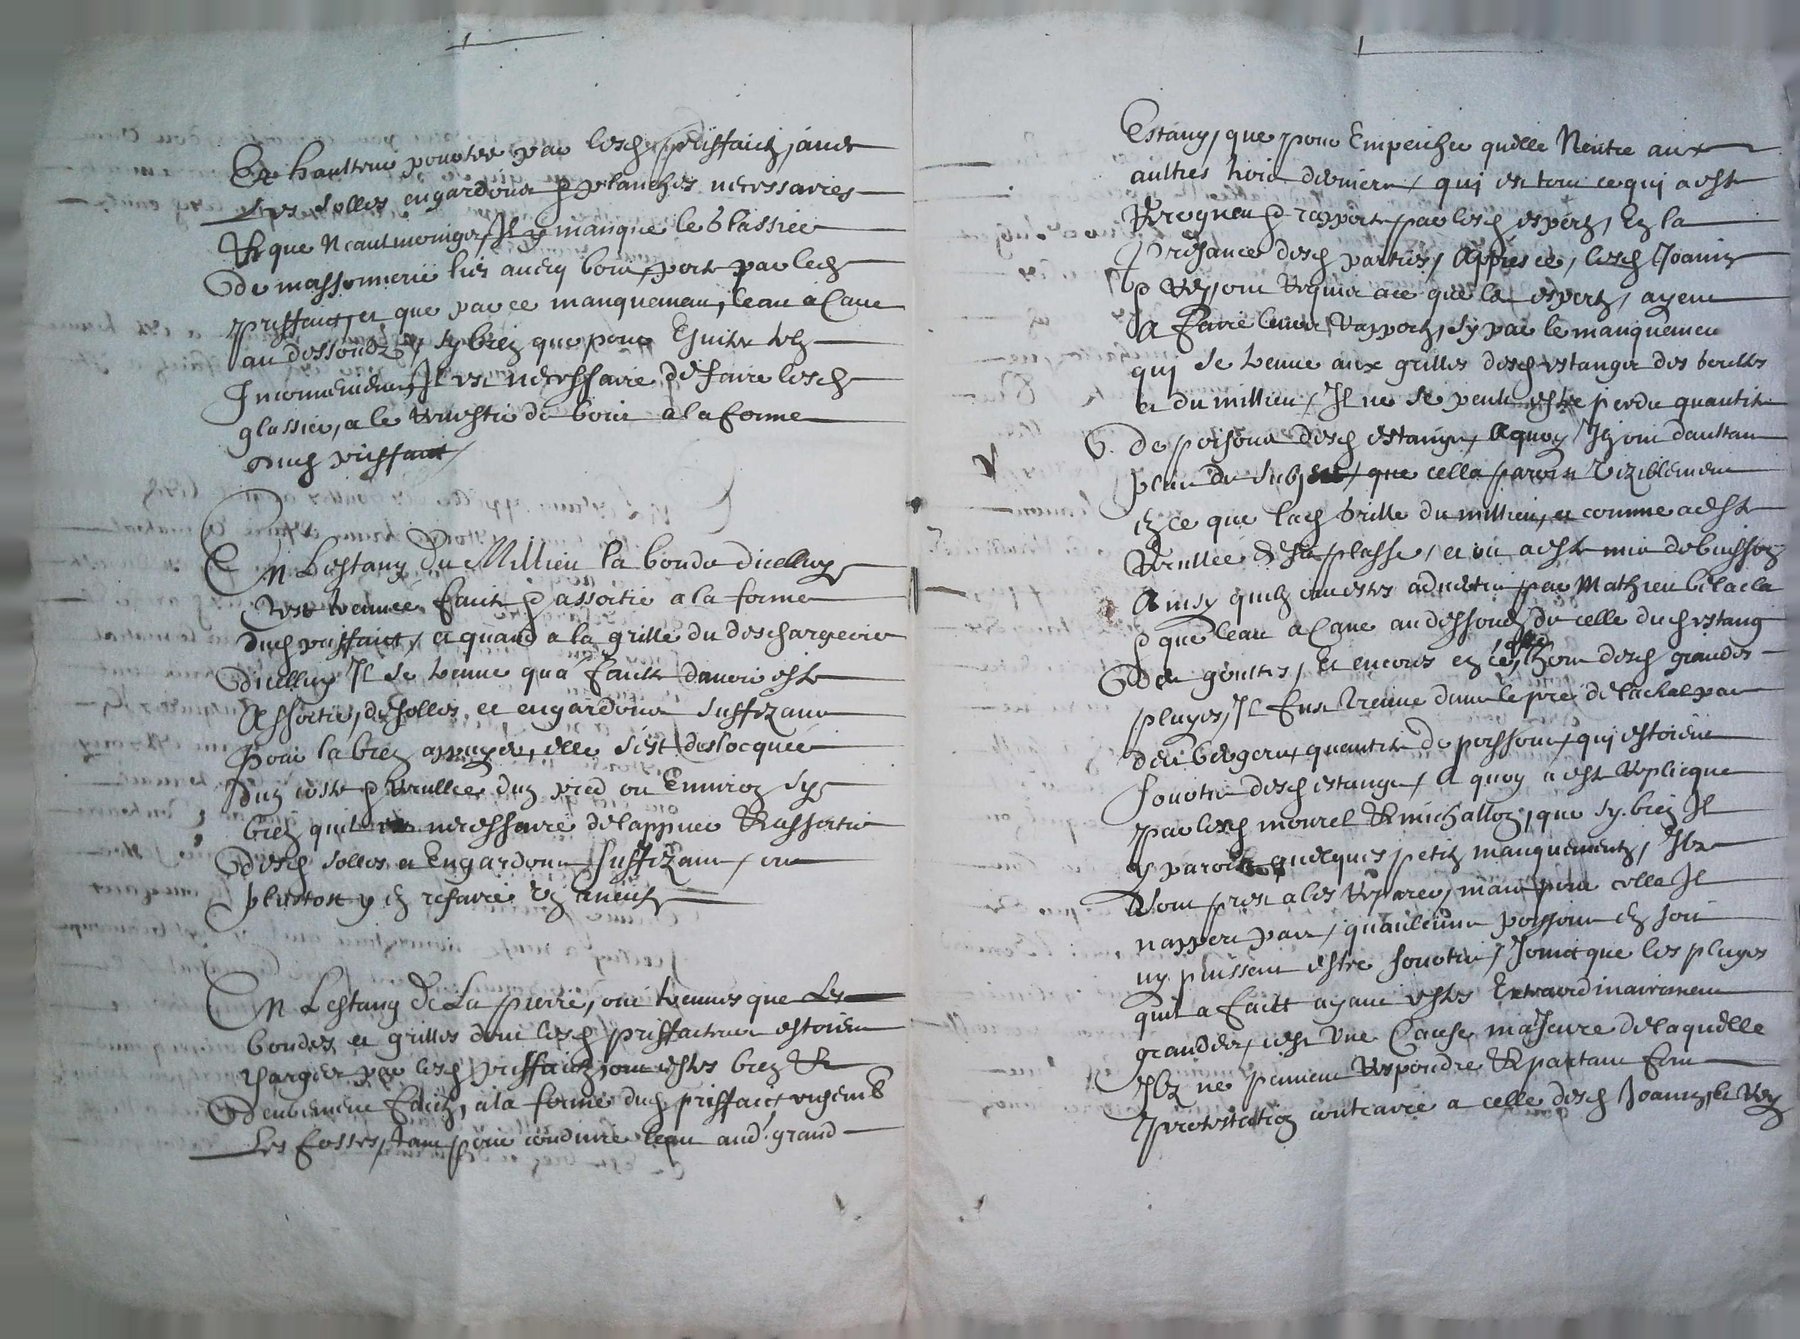 Et haulteur pourtee par lesd priffaictz, avec
ses solles engardour & planches necessaires
Et que neautmoingtz Il y manque le glassier
de massonnerie lies avecq bois, porte par led
priffaict, et que par ce manquement, leau a Cave
au dessoubz, sy bien que pour Eviter telz
Incomenienz, Il est necessaire de faire lesd
glassier, a le revestir de bois a la forme
dud priffaict
En Lestang du Millieu la bonde dicelluy
est treuvee faicte & assortie a la forme
dud priffaict, et quand a la grille du deschargeoir
dicelluy Il se treuve qua faulte davoir este
Assortie, de solles et engardour suffizant
pour la bien appuyer, elle sest deslocquee
dun coste & reculler dun pied ou Environ sy
bien quil est necessaire de lappuier & assortir
desd solles et Engardour suffizant, ou
plustost y en refaire une neufve
En Lestang de La pierre, ont treuvé que Les
bondes et grilles dont lesd priffacteurs estoient
charges par lesd priffaictz, ont estes bien &
deubement faictz, a la forme dud priffaict ensemb
Les fosses, tant pour conduire leau aud grand
Estang, que pour Empeicher quelle Nentre aux
aultres trois derniers, qui est tout ce qui a este
Recogneu & rapporté par lesd expertz, En la
presance desd parties, Appres ce, lesd Joanin
& Rey ont Requis ace que les expertz, ayent
A faire leur Rapport, sy par le manquement
qui se treuve aux grilles desd estangtz des boulles
et du millieu, Il ne se peult estre perdu quantité
de poissons desd estangtz, Aquoy Ilz ont daultan
plus de subject, que cella paroit viziblement
en ce que lad grille du millieu, et comme a este
Recullee de sa plasse, et ou a este mis de buisson
Ainsy quilz ont estes admetu par Mathieu
& que leau a Cave au dessoubz de celle dud estang
de goultes, Et encores en ce, quapres desd grandes
pluyes, Il fust treuve dans le pre de lachal par
des bergers, quantité de poissons, qui estoient
sourtis desd estangtz, A quoy a este Replicque
par lesd mourel & michallon, que sy bien Il
y paroit quelques petitz manquementz, Ilz
sont prest ales Reparer, mais pour cella Il
nappert pas, quaulcuns poissons en soit
ny puissent estre sourtir, Joinct que les pluyes
quil a faict ayant estes Extraordinairement
grandes, cest Une Cause majeure de laquelle
Ilz ne peuvent Respondre & partant font
protestation contraire a celle desd Joanin, et Rey